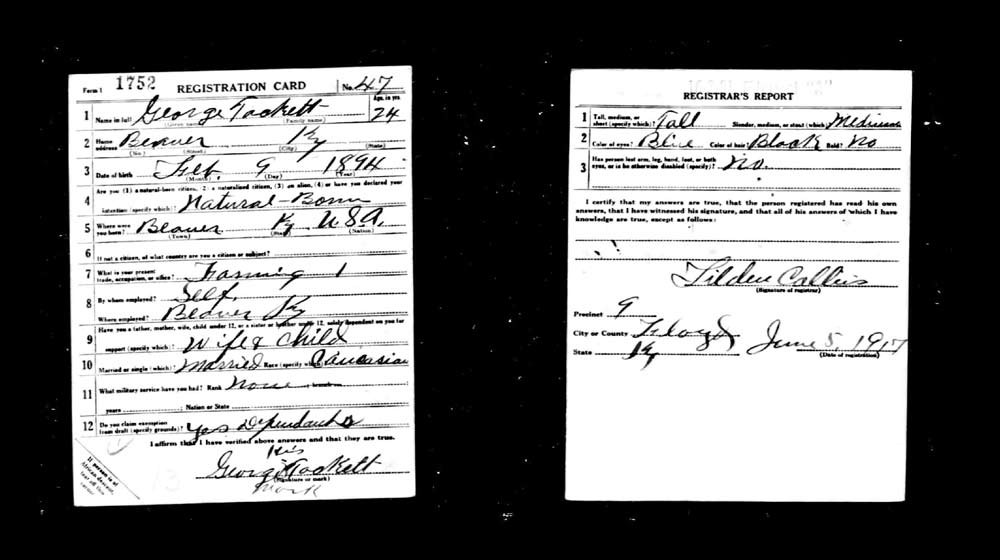 Form 1 1752 REGISTRATION CARD No. 47
1 Name in full George Tackett Age, in yrs. 24
(Given name) (Family name)
2 Home address Beaver Ky
(No.) (Street) (City) (State)
3 Date of birth Feb. 9 1894
(Month) (Day) (Year)
4 Are you (1) a natural-born citizen, (2) a naturalized citizen, (3) an alien, (4) or have you declared your
intention (specify which)? Natural-Born
5 Where were you born? Beaver Ky U.S.A.
(Town) (State) (Nation)
6 If not a citizen, of what country are you a citizen or subject?
7 What is your present trade, occupation, or office? Farming 1
8 By whom employed? Self.
Where employed? Beaver Ky
9 Have you a father, mother, wife, child under 12, or a sister or brother under 12, solely dependent on you for
support (specify which)? Wife & Child
10 Married or single (which)? Married Race (specify which)? Caucasian
11 What military service have you had? Rank None ; branch
years ; Nation or State
12 Do you claim exemption from draft (specify grounds)? Yes Dependants
I affirm that I have verified above answers and that they are true.
His
George Tackett
(Signature or mark)
Mark
If person is of
African descent,
tear off this
corner
REGISTRAR'S REPORT
1 Tall, medium, or short (specify which)? Tall Slender, medium, or stout (which)? Medium
2 Color of eyes? Blue Color of hair? Black Bald? No
3 Has person lost arm, leg, hand, foot, or both
eyes, or is he otherwise disabled (specify)? No.
I certify that my answers are true, that the person registered has read his own
answers, that I have witnessed his signature, and that all of his answers of which I have
knowledge are true, except as follows:
Tilden Collins
(Signature of registrar)
Precinct 9
City or County Floyd
State Ky
June 5, 1917
(Date of registration)